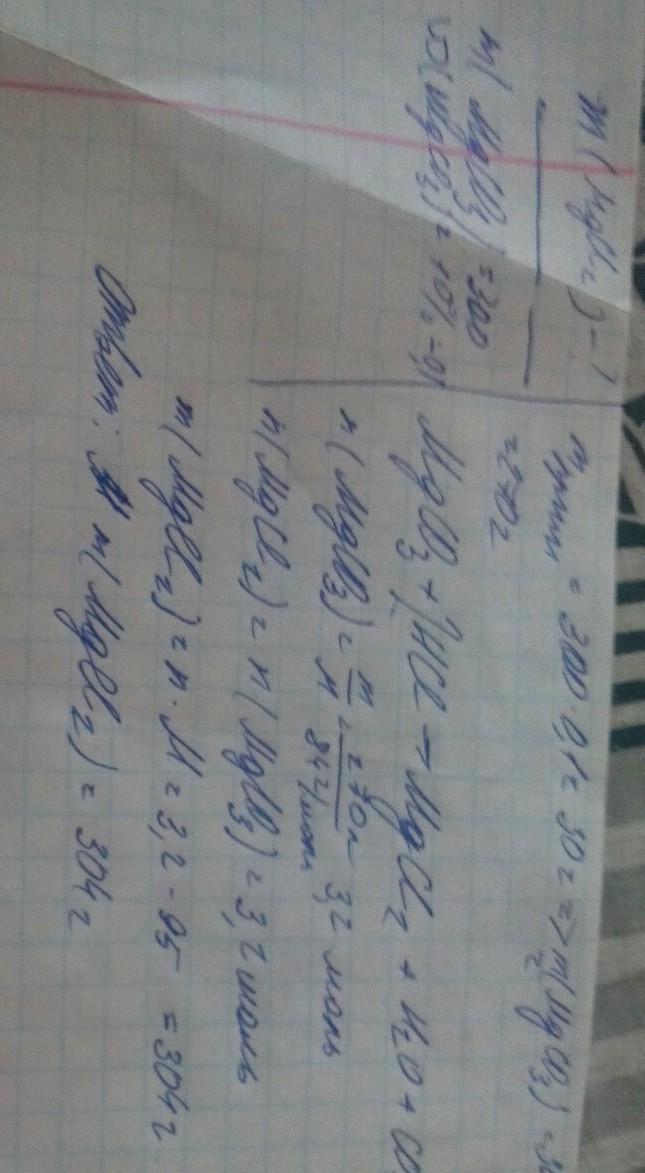 m(MgCO₃) = 300
ω(MgCO₃) = 10% = 0,1
m(MgCl₂) - ?
m = 300 · 0,1 = 30 г => m(MgCO₃) =
= 270 г
MgCO₃ + 2HCl → MgCl₂ + H₂O + CO
n(MgCO₃) = m/M = 270 г/84 г/моль = 3,2 моль
n(MgCl₂) = n(MgCO₃) = 3,2 моль
m(MgCl₂) = n · M = 3,2 · 95 = 304 г
Ответ: m(MgCl₂) = 304 г